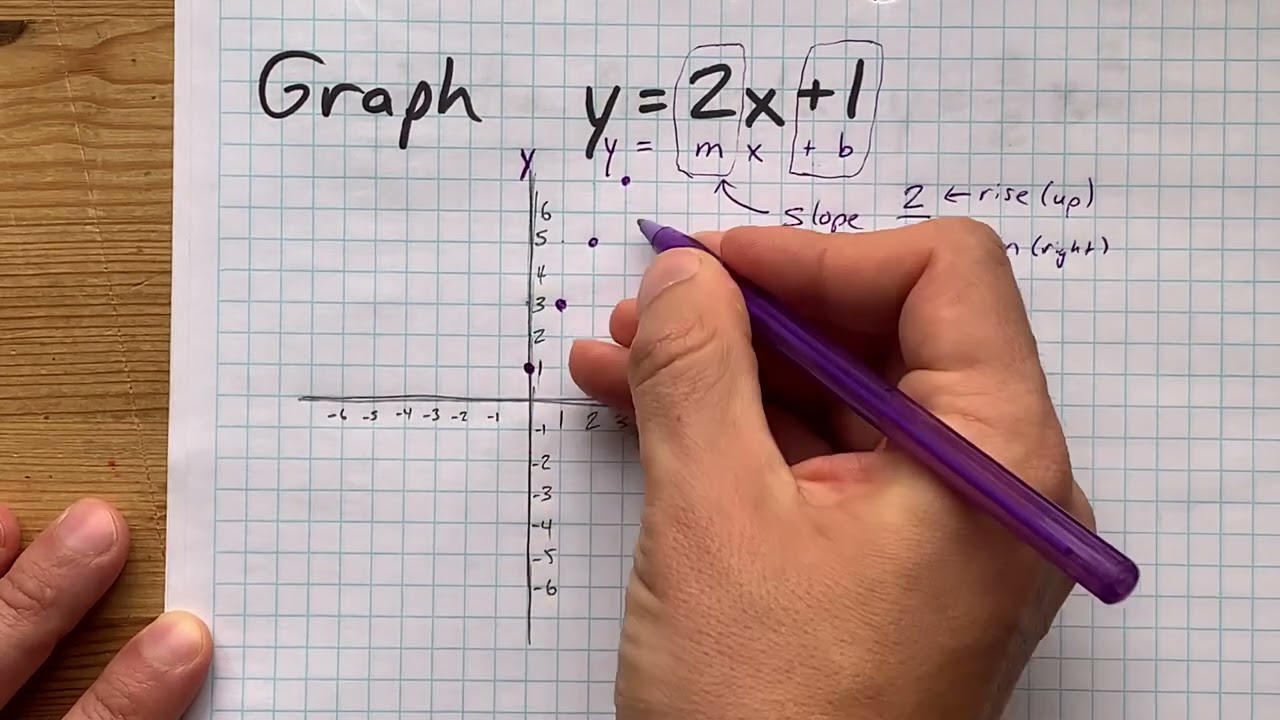 Graph y = 2x + 1
y = m x + b
y
2 ← rise (up)
slope
(right)
6
5
4
3
2
1
-6 -5 -4 -3 -2 -1 1 2 3
-1
-2
-3
-4
-5
-6